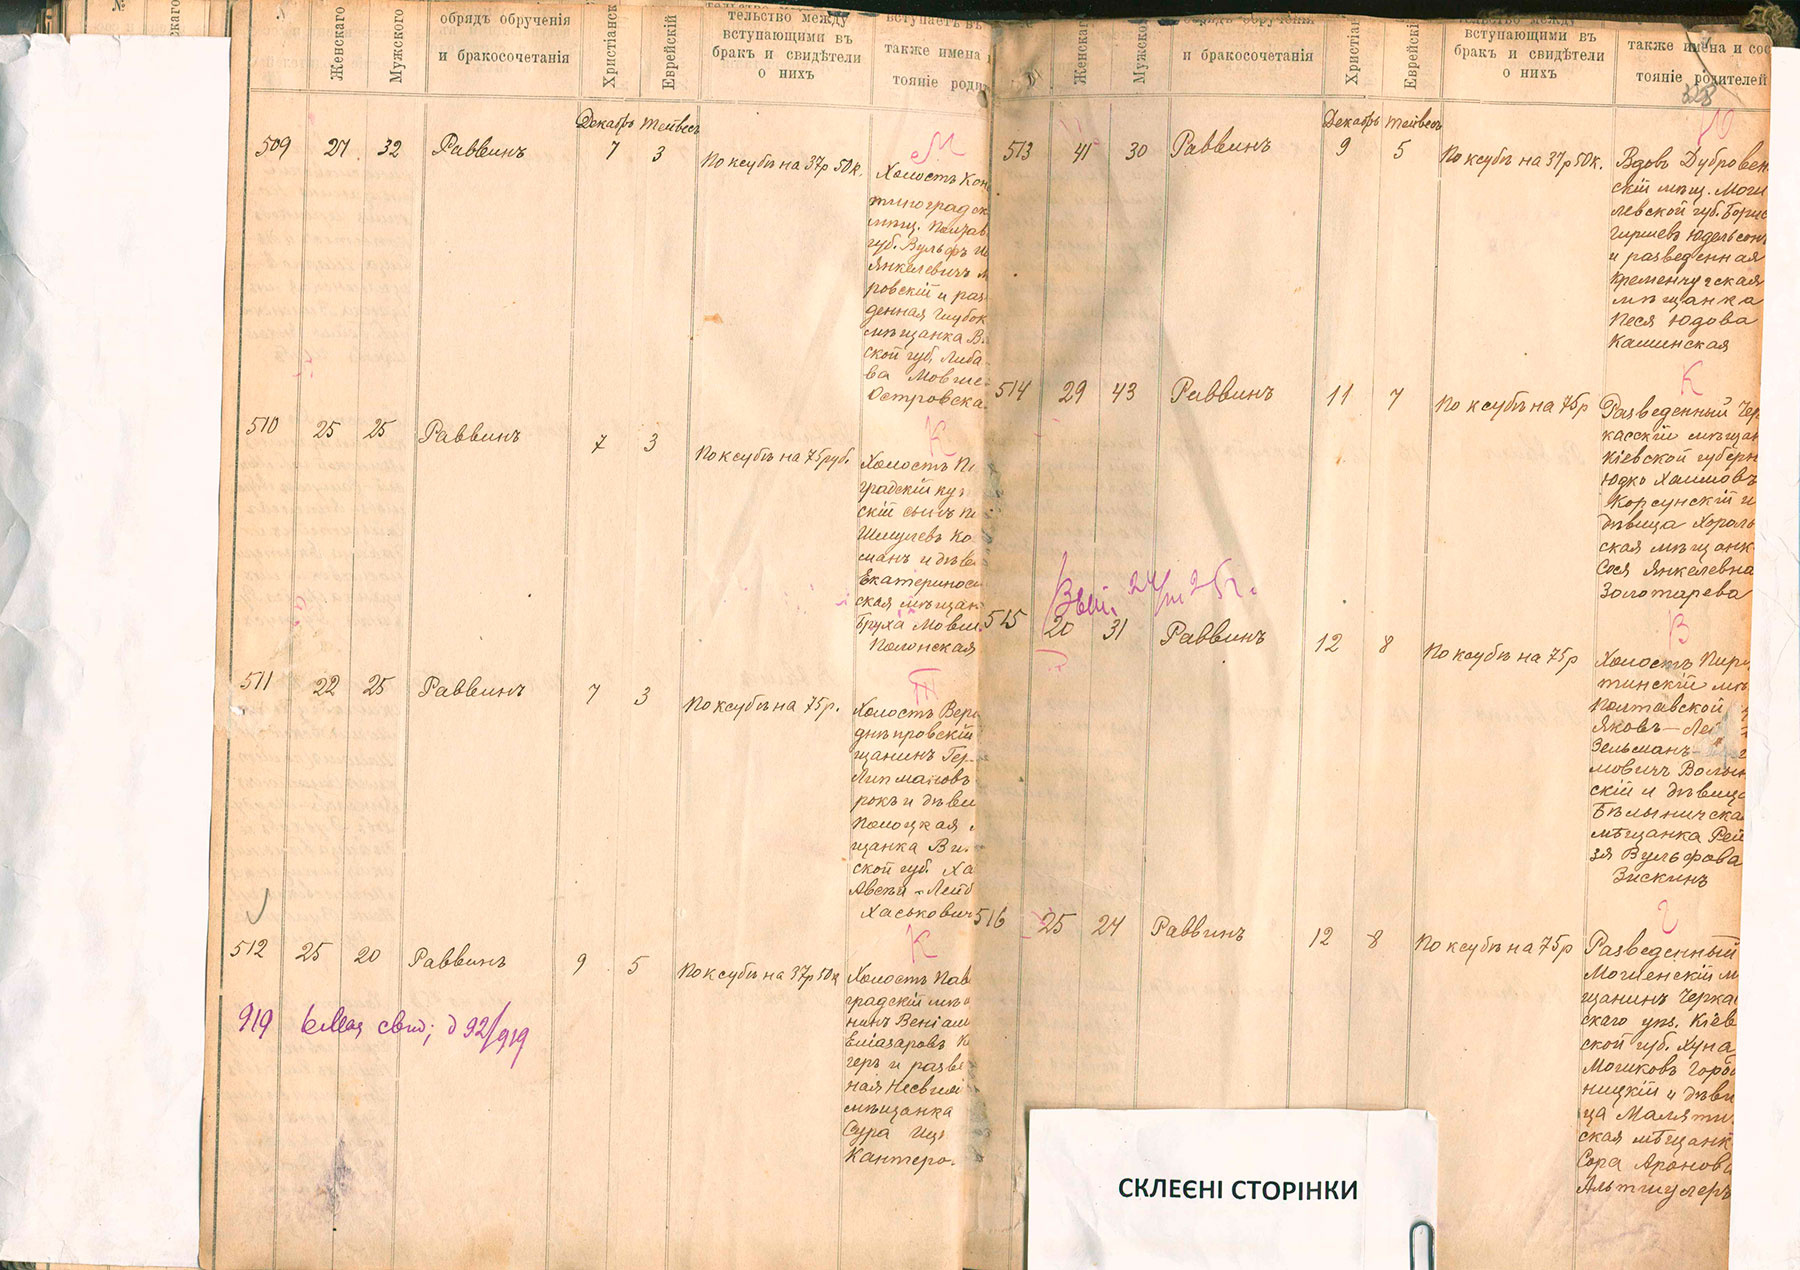 №
Женскаго
Мужского
обрядъ обрученія
и бракосочетанія
Христіанск
Еврейскій
тельство между
вступающими въ
бракъ и свидѣтели
о нихъ
вступаетъ въ
также имена
тояніе роди
Декабрь Тейвесъ
509 27 32 Раввинъ 7 3 По ксубѣ на 37р 50к.
М
Холостъ Кон
тиноградск
мѣщ. Полтав
губ. Вульфъ
Янкелевичъ
ровскій и раз
денная Глубок
мѣщанка В
ской губ. Либа
ва Мовше
Островска
510 25 25 Раввинъ 7 3 По ксубѣ на 75 руб.
К
Холостъ
градскій куп
скій сынъ
Шмулевъ Ко
сманъ и дѣви
Екатеринос
ская мѣщан
Бруха Мовш
Полонская
511 22 25 Раввинъ 7 3 По ксубѣ на 75р.
Холостъ Верх
днѣпровскій
щанинъ Гер
Липмановъ
рокъ и дѣви
Полоцкая
щанка Ви
ской губ. Ха
Авсѣй-Лейб
Хаськович
512 25 20 Раввинъ 9 5 По ксубѣ на 37р 50к
К
Холостъ Пав
градскій мѣщ
нинъ Веніам
Еліазаровъ
геръ и разве
ная Несвиж
мѣщанка
Сура Иц
Канторо
919 92/919
Женскаго
Мужско
обрядъ обрученія
и бракосочетанія
Христіан
Еврейскі
тельство между
вступающими въ
бракъ и свидѣтели
о нихъ
также имена и сос
тояніе родителей
328
Декабрь Тейвесъ
513 41 30 Раввинъ 9 5 По ксубѣ на 37р 50к.
Ю
Вдовъ Дубровен
скій мѣщ. Моги
левской губ. Борис
Гиршевъ Юдельсонъ
и разведенная
Кременчугская
мѣщанка
Песя Юдова
Калинская
514 29 43 Раввинъ 11 7 По ксубѣ на 75р
К
Разведенный Чер
касскій мѣщан
Кіевской губерн
Юдко Хаимовъ
Корсунскій и
дѣвица Хороль
ская мѣщанк
Сося Янкелевна
Золотарева
24/VIII 25г.
515 20 31 Раввинъ 12 8 По ксубѣ на 75р
В
Холостъ Пиря
тинскій мѣ
Полтавской
Яковъ-Лей
Зельманъ-
мовичъ Волын
скій и дѣвица
Бѣлыничска
мѣщанка Рей
зя Вульфова
Зискинъ
516 25 24 Раввинъ 12 8 По ксубѣ на 75р
Г
Разведенный
Могленскій м
щанинъ Черка
скаго уѣз. Кіев
ской губ. Хуна
Мошковъ Горо
ницкій и дѣви
ца Маляти
ская мѣщанк
Сора Аронова
Альтшулеръ
СКЛЕЄНІ СТОРІНКИ